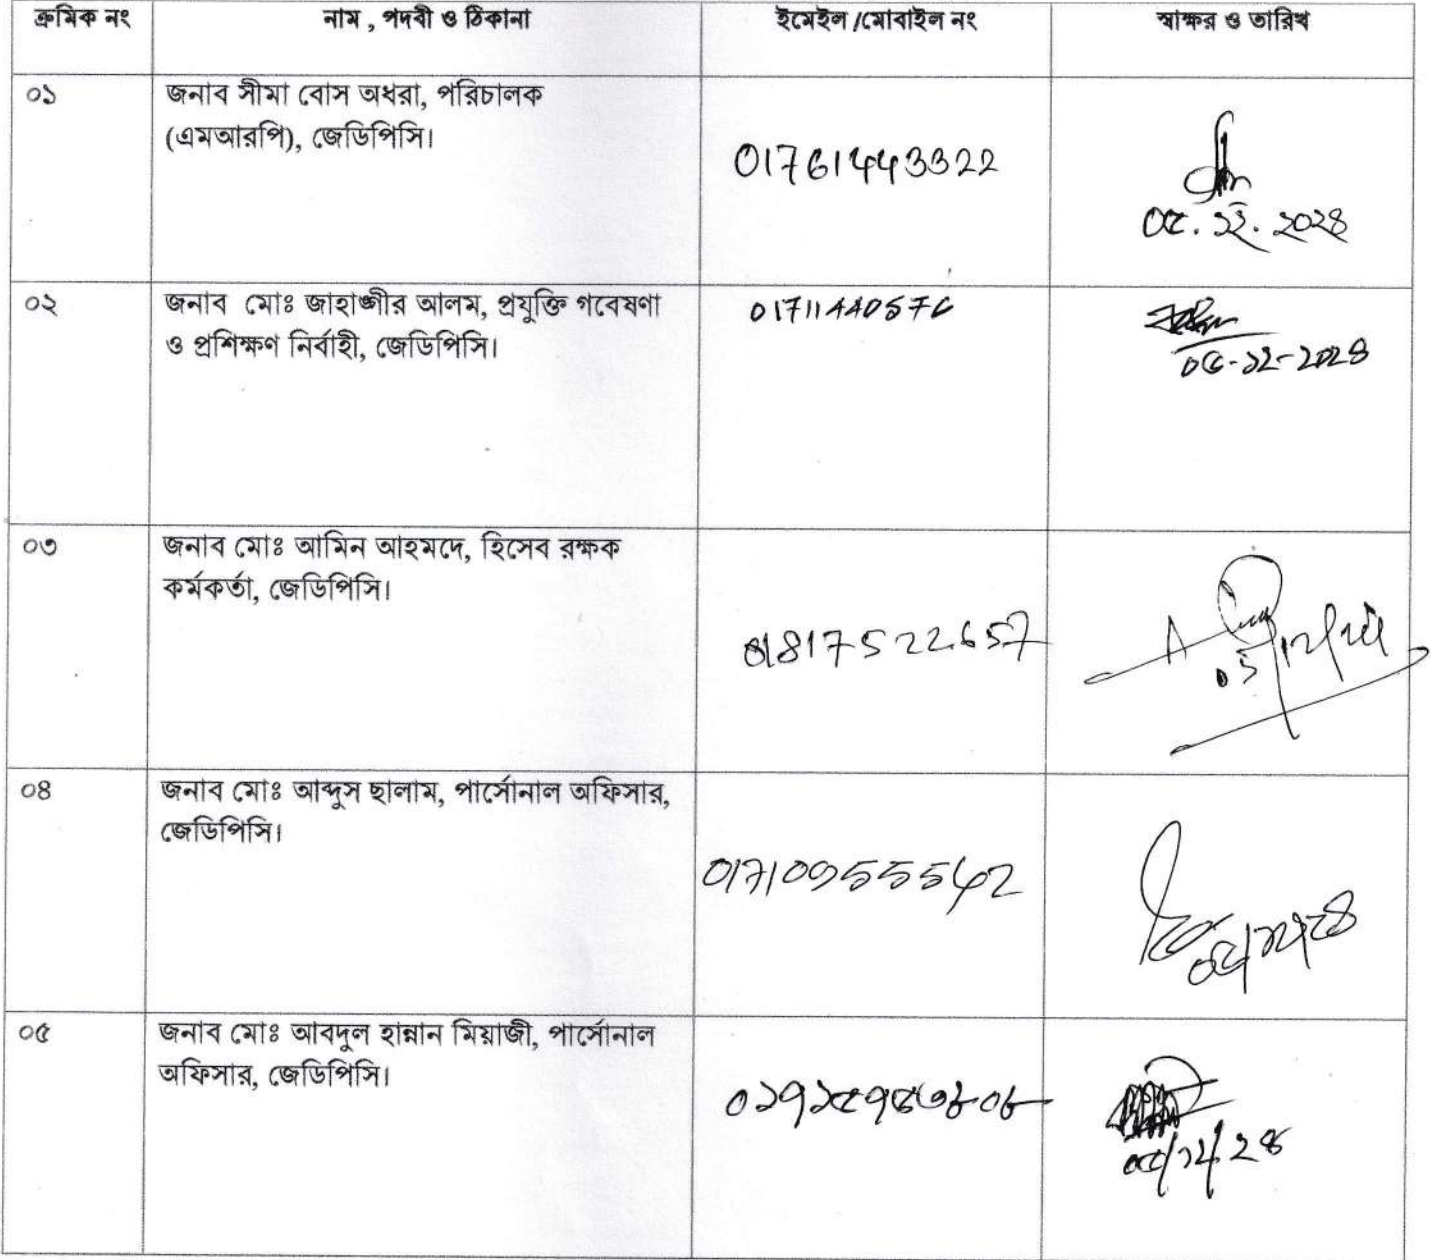 ক্রমিক নং নাম , পদবী ও ঠিকানা ইমেইল /মোবাইল নং স্বাক্ষর ও তারিখ
০১ জনাব সীমা বোস অধরা, পরিচালক
(এমআরপি), জেডিপিসি।
01761443322
০৫.১২.২০২৪
০২ জনাব মোঃ জাহাঙ্গীর আলম, প্রযুক্তি গবেষণা
ও প্রশিক্ষণ নির্বাহী, জেডিপিসি।
01711440576
০৫-১২-২০২৪
০৩ জনাব মোঃ আমিন আহমদে, হিসেব রক্ষক
কর্মকর্তা, জেডিপিসি।
01817522657
05/12/24
০৪ জনাব মোঃ আব্দুস ছালাম, পার্সোনাল অফিসার,
জেডিপিসি।
01710955542
০৫/১২/২৪
০৫ জনাব মোঃ আবদুল হান্নান মিয়াজী, পার্সোনাল
অফিসার, জেডিপিসি।
০৫/১২/২৪